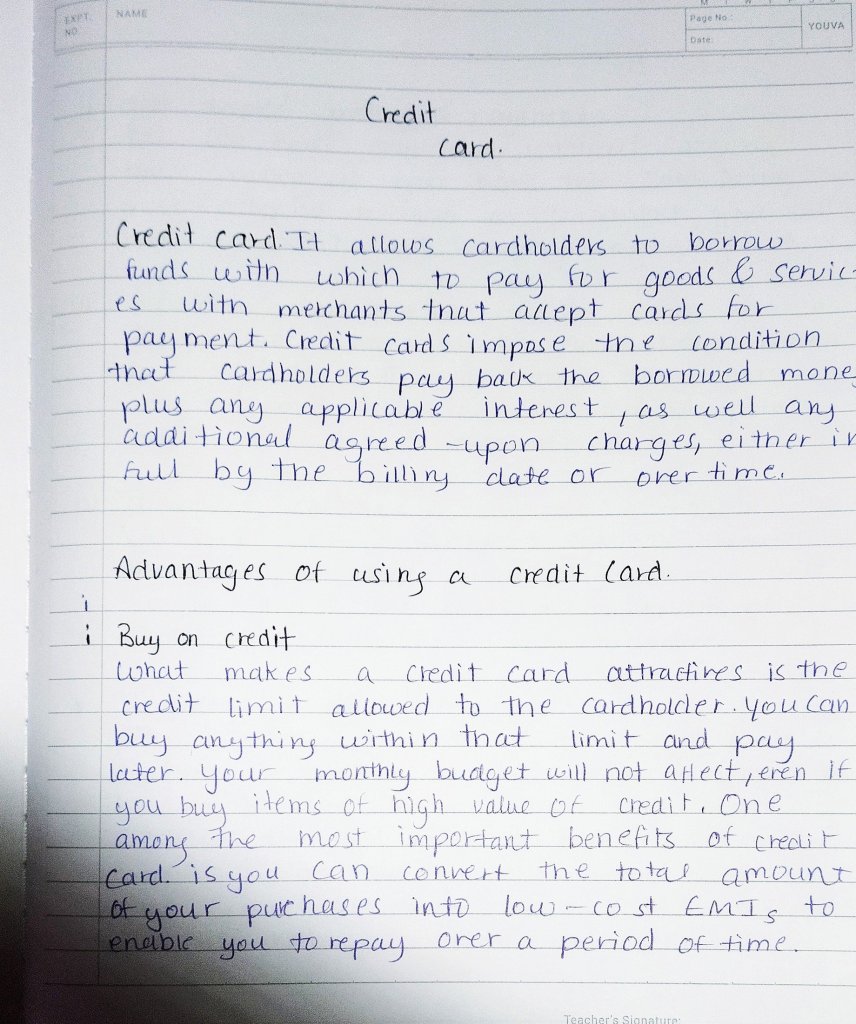 EXPT. NO.
NAME
Page No.:
Date:
YOUVA
Credit
Card.
Credit card. It allows cardholders to borrow
funds with which to pay for goods & servic-
es with merchants that accept cards for
payment. Credit cards impose the condition
that cardholders pay back the borrowed money
plus any applicable interest, as well any
additional agreed-upon charges, either in
full by the billing date or over time.
Advantages of using a credit Card.
i
i Buy on credit
What makes a credit card attractives is the
credit limit allowed to the cardholder. You can
buy anything within that limit and pay
later. Your monthly budget will not affect, even if
you buy items of high value of credit. One
among the most important benefits of credit
Card. is you can convert the total amount
of your purchases into low-cost EMIs to
enable you to repay over a period of time.
Teacher's Signature: